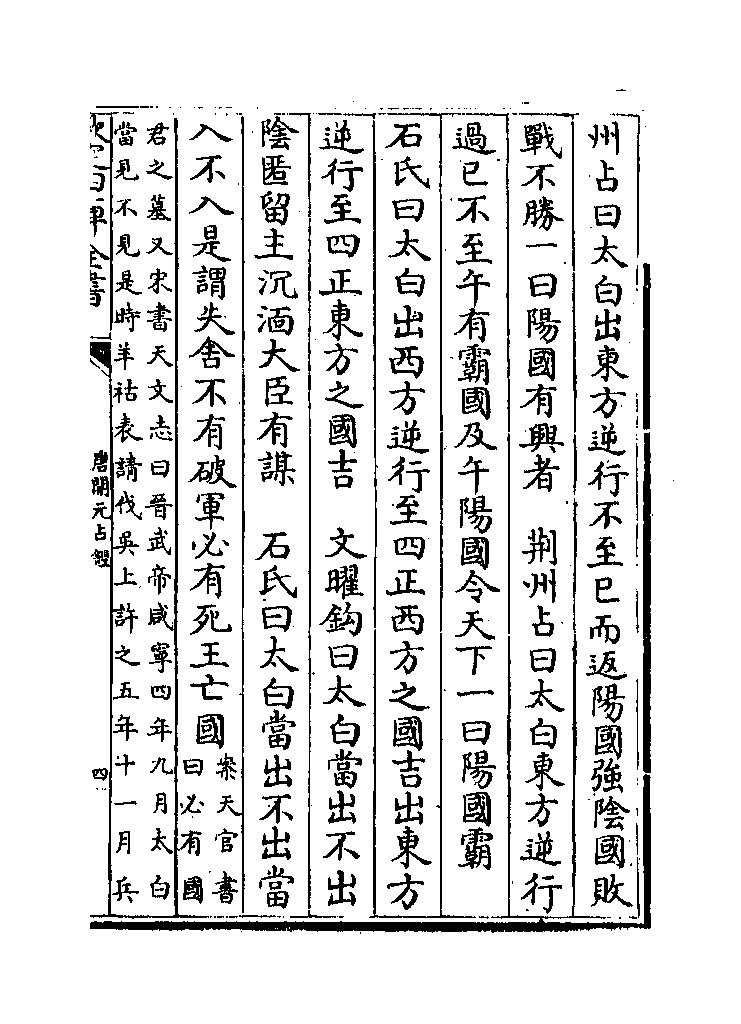 州占曰太白出東方逆行不至巳而返陽國強陰國敗
戰不勝一曰陽國有興者　荆州占曰太白東方逆行
過巳不至午有霸國及午陽國令天下一曰陽國霸
石氏曰太白出西方逆行至四正西方之國吉出東方
逆行至四正東方之國吉　文曜鈎曰太白當出不出
陰匿留主沉湎大臣有謀　石氏曰太白當出不出當
入不入是謂失舍不有破軍必有死王亡國
案天官書
曰必有國
君之墓又宋書天文志曰晉武帝咸寧四年九月太白
當見不見是時羊祜表請伐吳上許之五年十一月兵
欽定四庫全書
唐開元占經
四